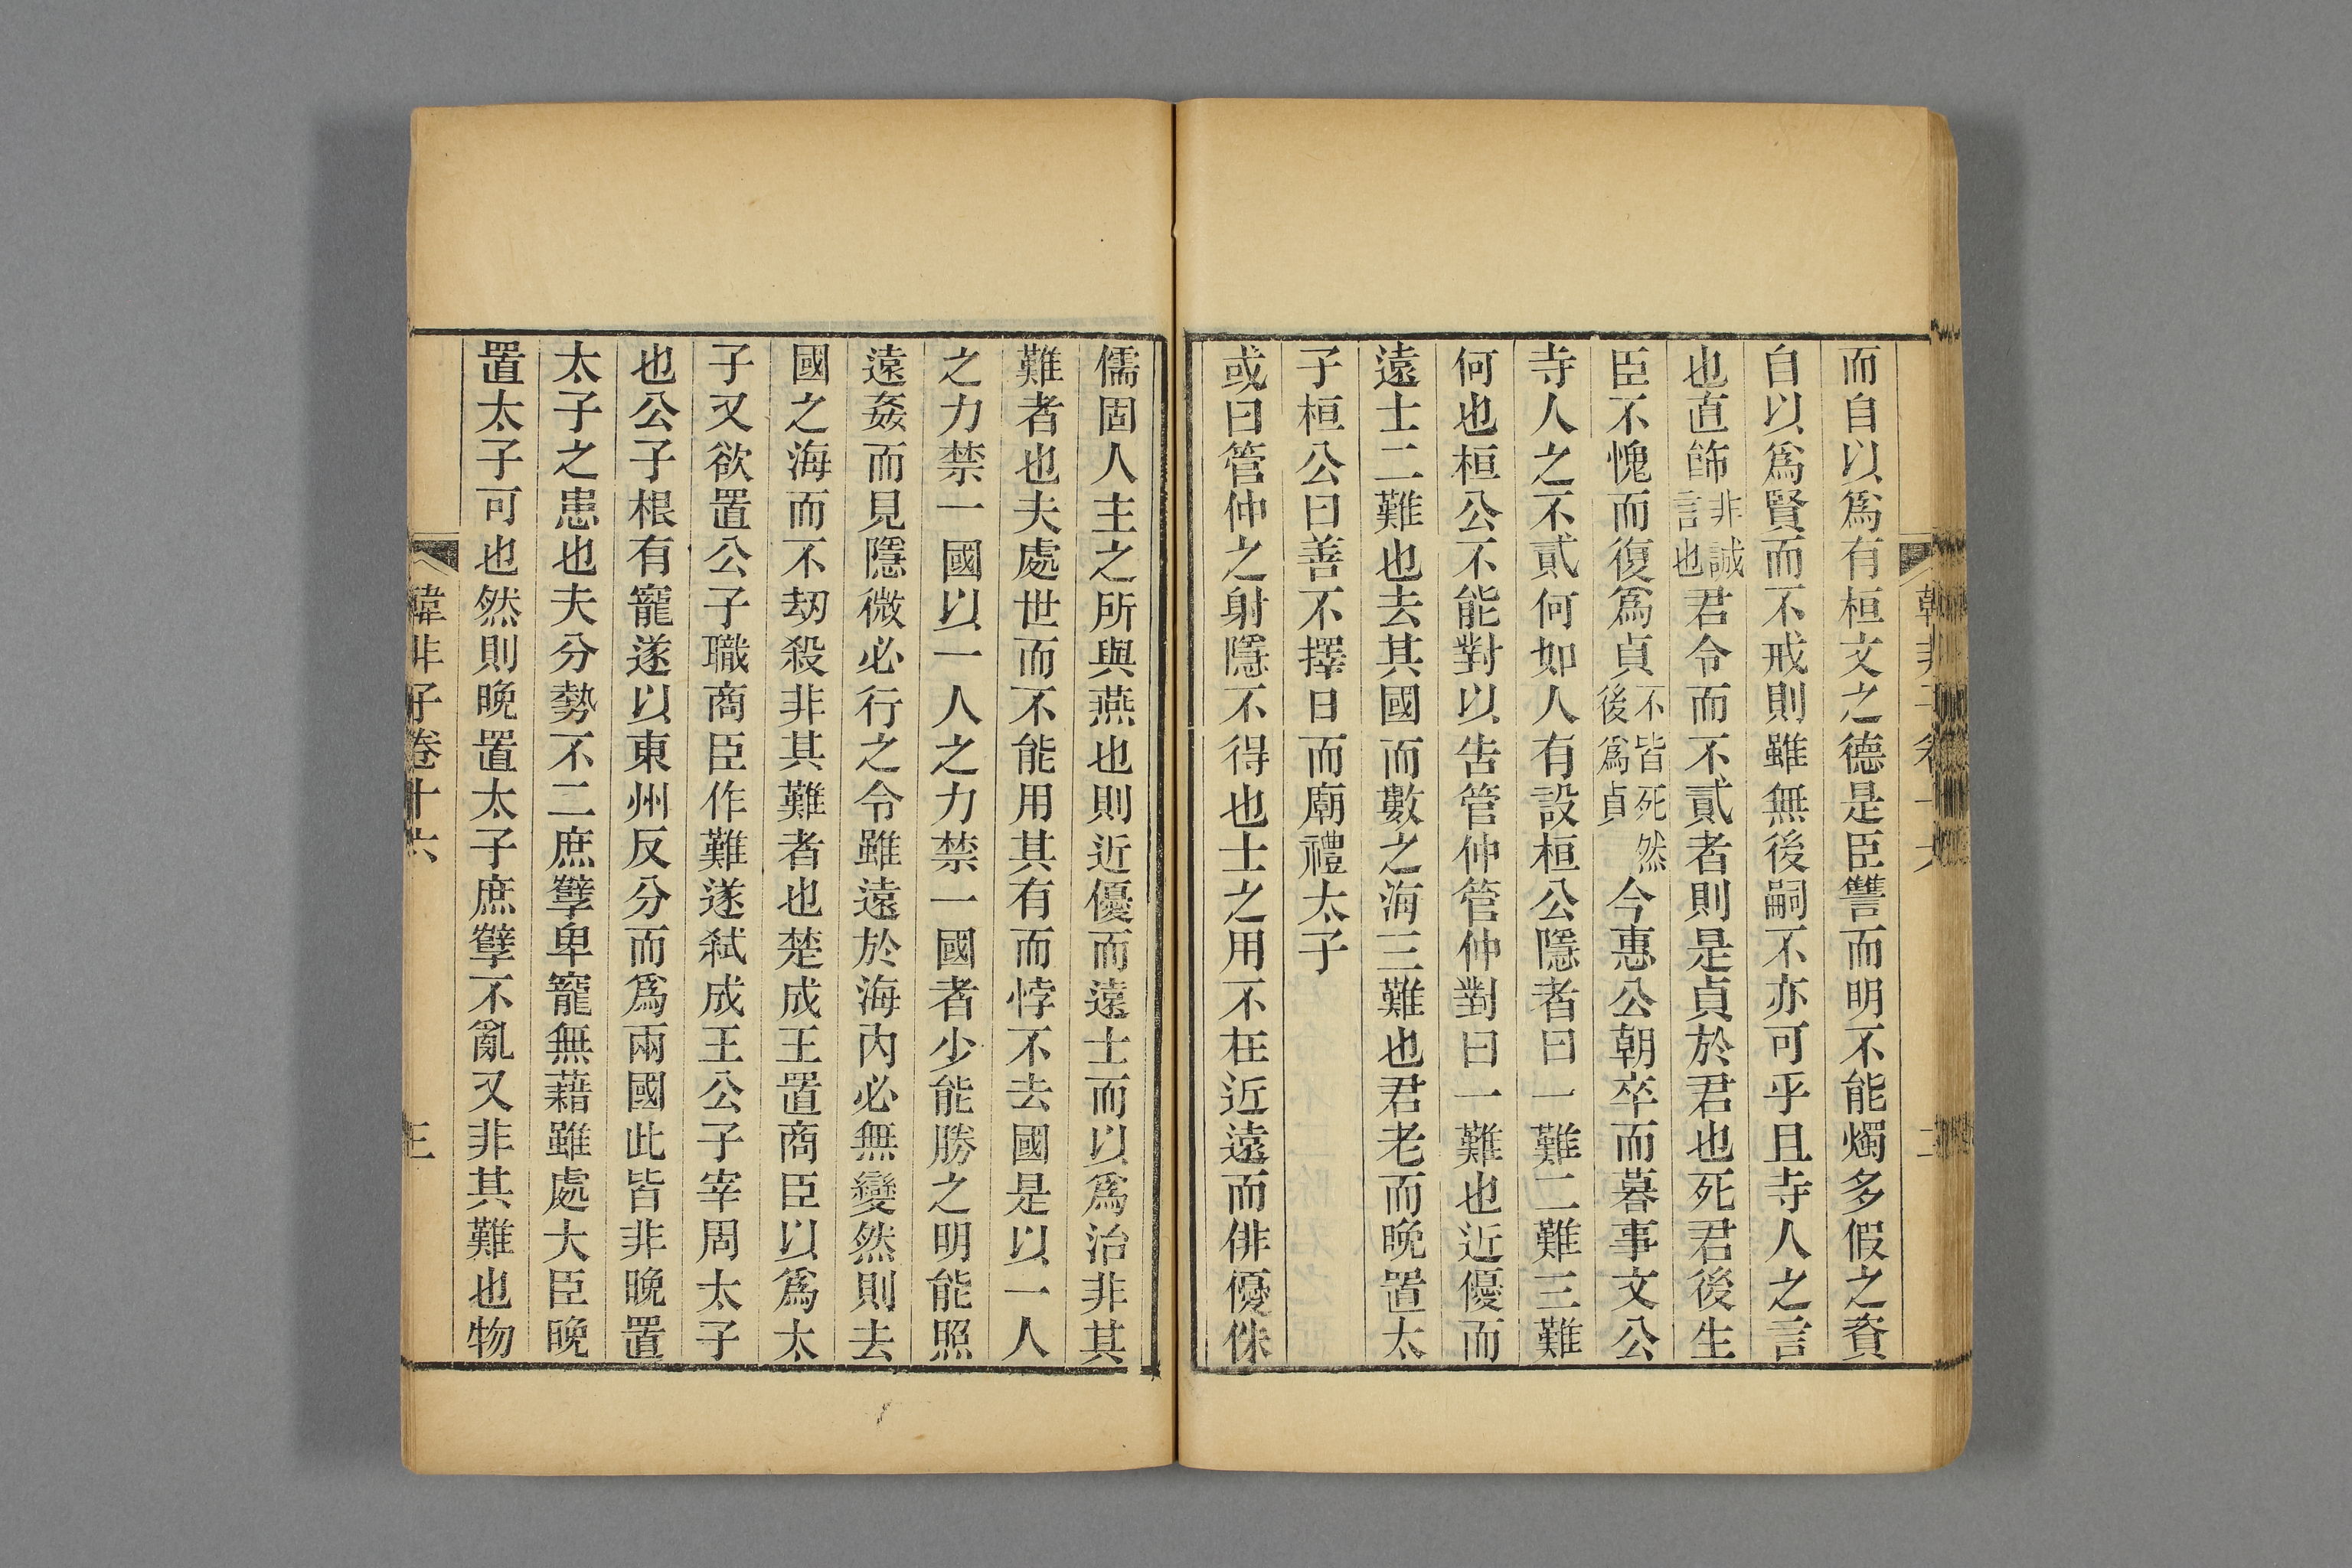 而自以爲有桓文之德是臣讐而明不能燭多假之資
自以爲賢而不戒則雖無後嗣不亦可乎且寺人之言
也直飾非誠言也君令而不貳者則是貞於君也死君後生
臣不愧而復爲貞不皆死然後爲貞今惠公朝卒而暮事文公
寺人之不貳何如人有設桓公隱者曰一難二難三難
何也桓公不能對以告管仲管仲對曰一難也近優而
遠士二難也去其國而數之海三難也君老而晚置太
子桓公曰善不擇日而廟禮太子
或曰管仲之射隱不得也士之用不在近遠而俳優侏
儒固人主之所與燕也則近優而遠士而以爲治非其
難者也夫處世而不能用其有而悖不去國是以一人
之力禁一國以一人之力禁一國者少能勝之明能照
遠姦而見隱微必行之令雖遠於海內必無變然則去
國之海而不刼殺非其難者也楚成王置商臣以爲太
子又欲置公子職商臣作難遂弑成王公子宰周太子
也公子根有寵遂以東州反分而爲兩國此皆非晚置
太子之患也夫分勢不二庶孽卑寵無藉雖處大臣晚
置太子可也然則晚置太子庶孽不亂又非其難也物
韓非子卷十六
三